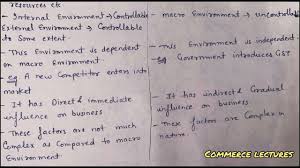 resources etc
- Internal Environment → Controllable
External Environment → Controllable
to Some extent
- This Environment is dependent
on macro Environment
- Eg A new Competitor enters into
market
- It has Direct & immediate
influence on business
- These factors are not much
Complex as Compared to macro
Environment
- macro Environment → uncontrollable
- This Environment is independent
- Eg Government introduces GST
- It has indirect & Gradual
influence on business
- These factors are Complex in
nature.
Commerce lectures